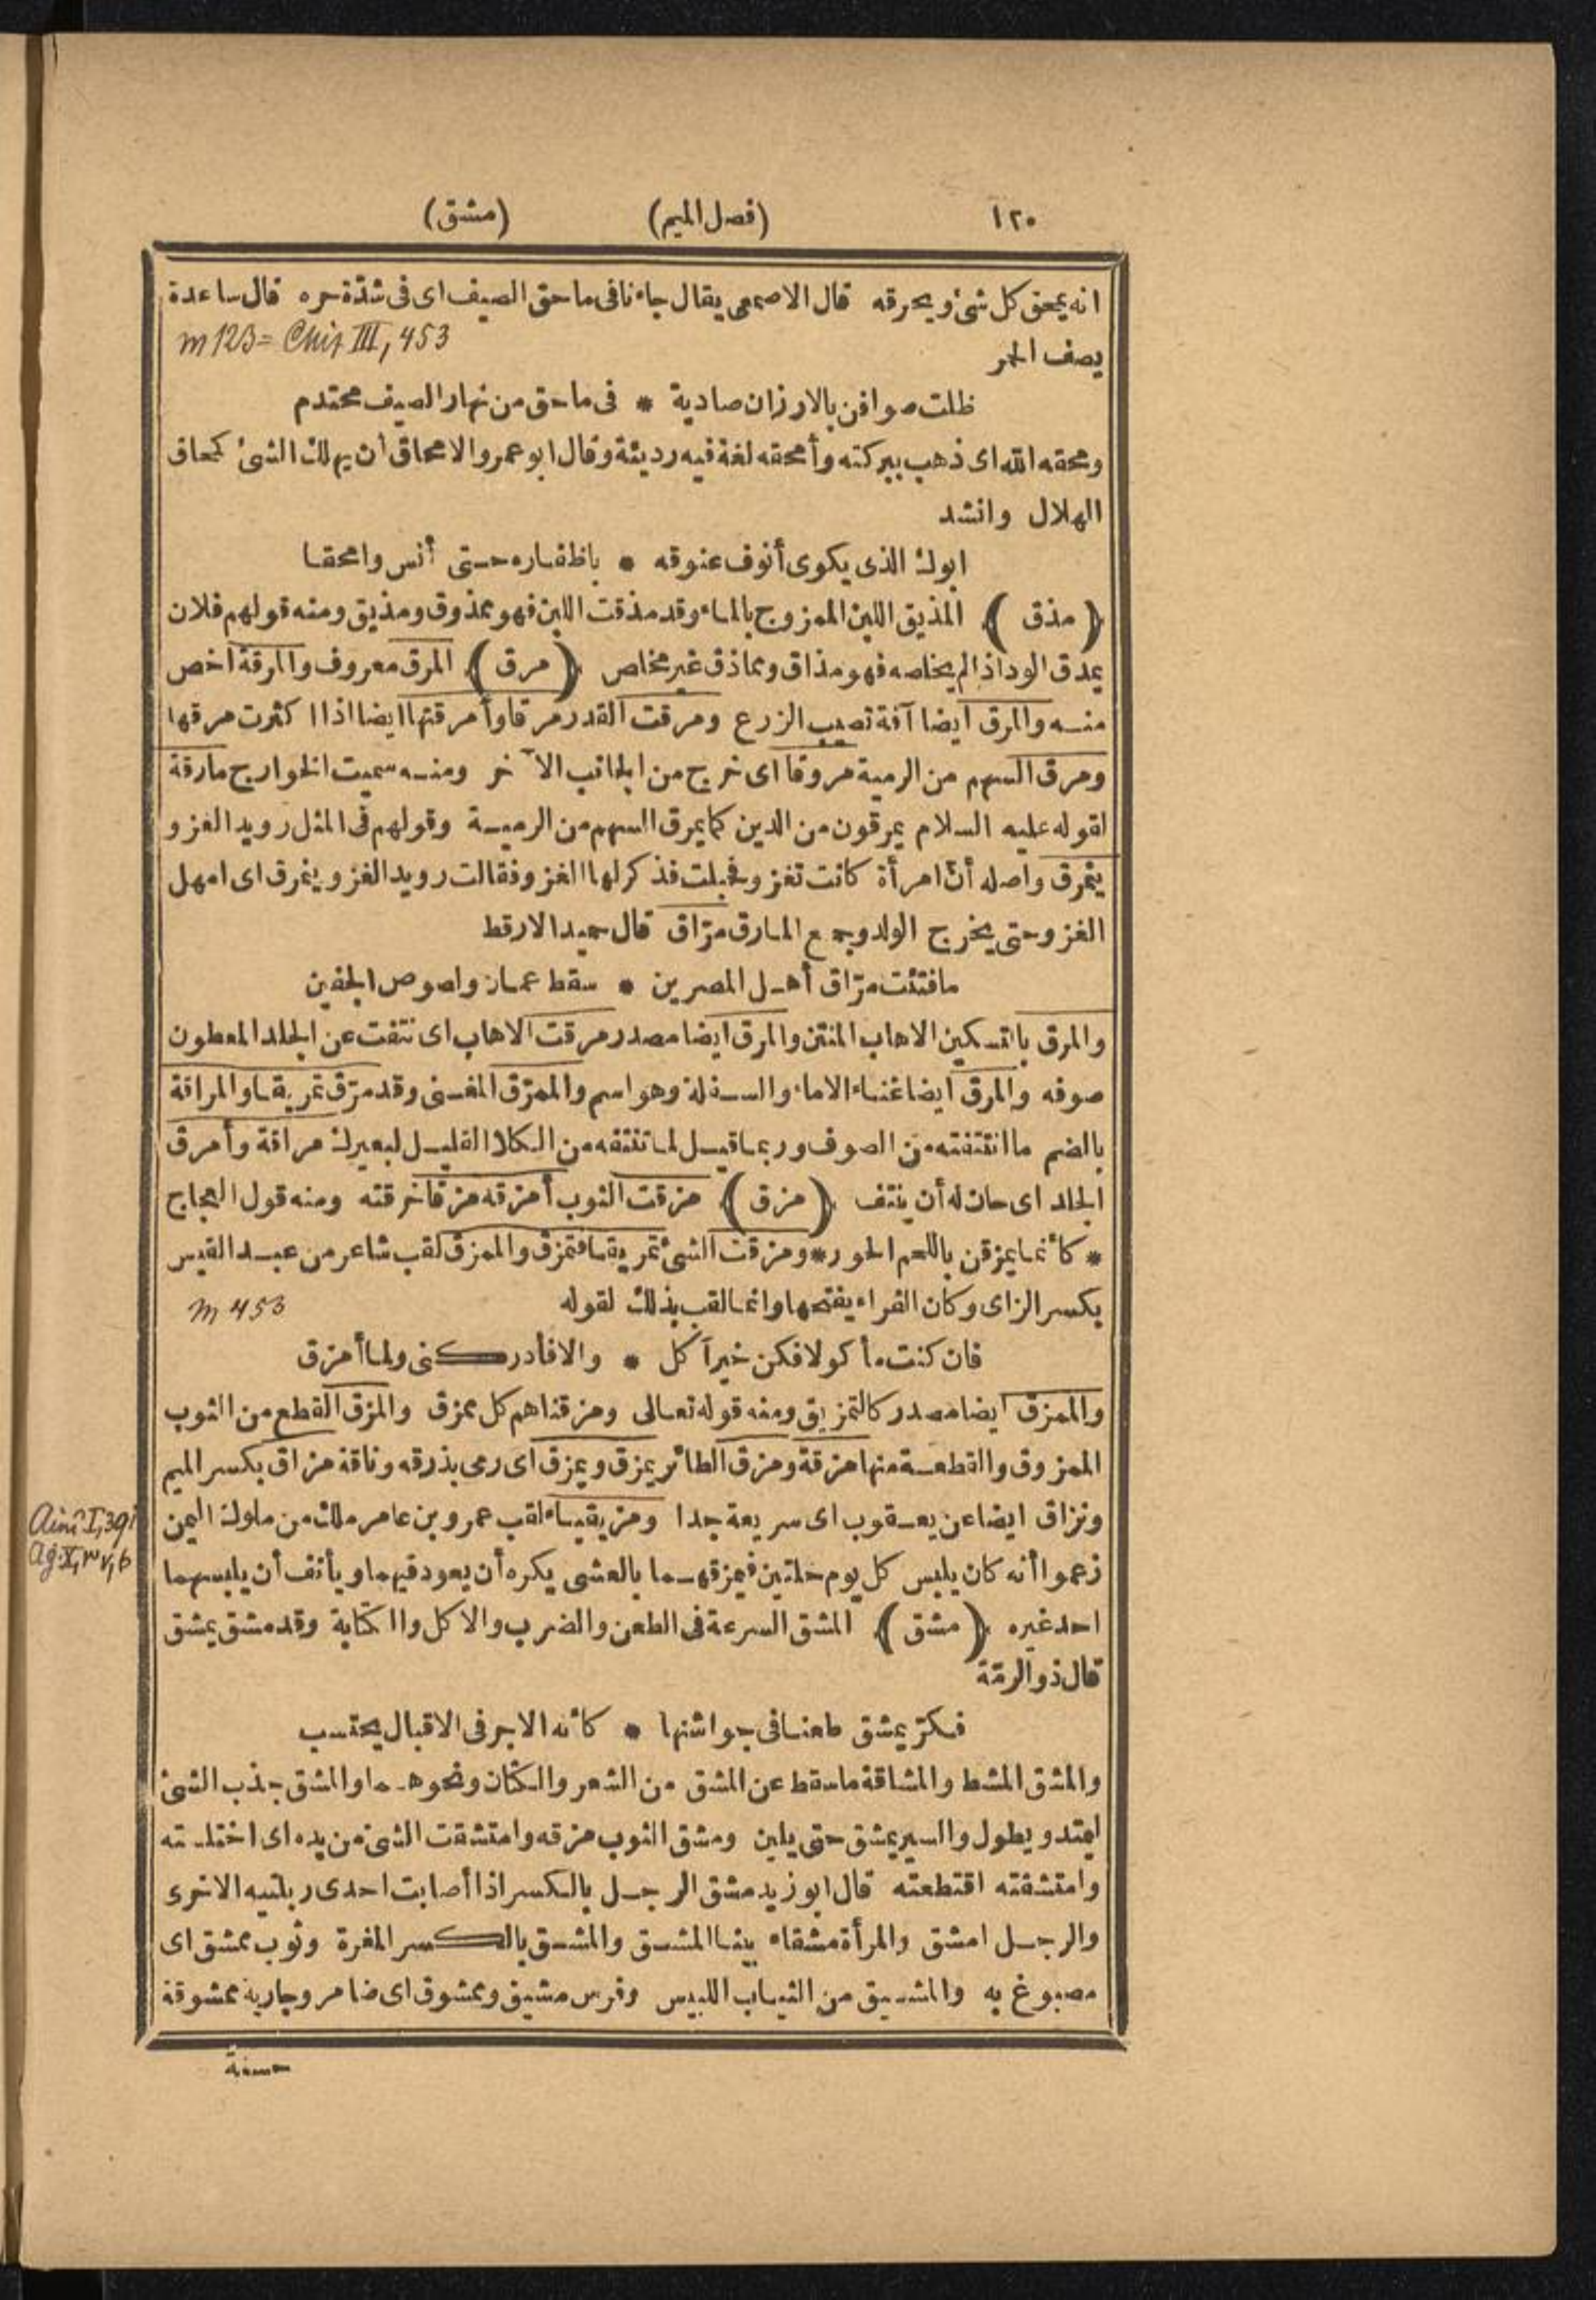 ١٢٠ (فصل الميم) (مشق)
انه يمحق كل شئ ويحرقه قال الاصمعى يقال جاءنا فى ماحق الصيف اى فى شدّة حره قال ساعدة
يصف الحمر
m 123 = Chiz III, 453
ظلت صوافن بالارزان صادية * فى ماحق من نهار الصيف محتدم
ومحقه الله اى ذهب ببركته وأمحقه لغة فيه رديئة وقال ابو عمرو الامحاق أن يهلك الشئ كمحاق
الهلال وانشد
ابوك الذى يكوى أنوف عنوقه * باظفاره حتى أنس وامحقا
(مذق) المذيق اللبن الممزوج بالماء وقد مذقت اللبن فهو ممذوق ومذيق ومنه قولهم فلان
يمذق الود اذا لم يخلصه فهو مذاق ومماذق غير مخلص (مرق) المرق معروف والمرقة اخص
منه والمرق ايضا آفة تصيب الزرع ومرقت القدر مرقا وأمرقتها ايضا اذا اكثرت مرقها
ومرق السهم من الرمية مروقا اى خرج من الجانب الآخر ومنه سميت الخوارج مارقة
لقوله عليه السلام يمرقون من الدين كما يمرق السهم من الرمية وقولهم فى المثل رويد الغزو
يتمرق واصله أنّ امرأة كانت تغزو فحبلت فذكر لها الغزو فقالت رويد الغزو ينمرق اى امهل
الغزو حتى يخرج الولد وجمع المارق مرّاق قال حميد الارقط
مافتئت مرّاق أهل المصرين * سقط عمان ولصوص الجفين
والمرق بالتسكين الاهاب المنتن والمرق ايضا مصدر مرقت الاهاب اى نتفت عن الجلد المعطون
صوفه والمرق ايضا غناء الاماء والسفلة وهو اسم والممرّق المغنى وقد مرّق تمريقا والمراقة
بالضم ما انتتفته من الصوف وربما قيل لما تنتفه من الكلا القليل لبعيرك مراقة وأمرق
الجلد اى حان له أن ينتف (مزق) مزقت الثوب أمزقه مزقا خرقته ومنه قول العجاج
* كأنما يمزقن باللحم الحور * ومزقت الشئ تمزيقا فتمزق والممزق لقب شاعر من عبد القيس
بكسر الزاى وكان الفراء يفتحها وانما لقب بذلك لقوله
m 453
فان كنت مأكولا فكن خير آكل * والا فأدركنى ولما أمزق
والممزق ايضا مصدر كالتمزيق ومنه قوله تعالى ومزقناهم كل ممزق والمزق القطع من الثوب
الممزوق والقطعة منها مزقة ومزق الطائر يمزق ويمزق اى رمى بذرقه وناقة مزاق بكسر الميم
ونزاق ايضا عن يعقوب اى سريعة جدا ومزيقياء لقب عمرو بن عامر ملك من ملوك اليمن
زعموا أنه كان يلبس كل يوم حلتين فيمزقهما بالعشى يكره أن يعود فيهما ويأنف أن يلبسهما
Ainî I, 391
Ag. X,
احد غيره (مشق) المشق السرعة فى الطعن والضرب والاكل والكتابة وقد مشق يمشق
قال ذو الرمّة
فكرّ يمشق طعنا فى جواشنها * كأنه الاجر فى الاقبال يحتسب
والمشق المشط والمشاقة ما سقط عن المشق من الشعر والكتان ونحوهما والمشق جذب الشئ
ليمتد ويطول والسير يمشق حتى يلين ومشق الثوب مزقه وامتشقت الشئ من يده اى اختلسته
وامتشقته اقتطعته قال ابو زيد مشق الرجل بالكسر اذا أصابت احدى ربلتيه الاخرى
والرجل امشق والمرأة مشقاء بينا المشق والمشق بالكسر المغرة وثوب ممشق اى
مصبوغ به والمشيق من الثياب اللبيس وفرس مشيق وممشوق اى ضامر وجارية ممشوقة
حسنة